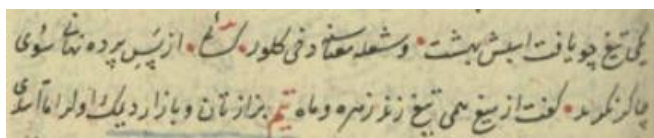 یکی تیغ چو یافت اسبش بهشت • و شعله معناسنه دخی کلور • از پس پرده نهانی سوی
چاکر نکرید • کفت از میغ همی تیغ زند زهره و ماه تیم بزازنان و بازاردیک اولر اما آسدی